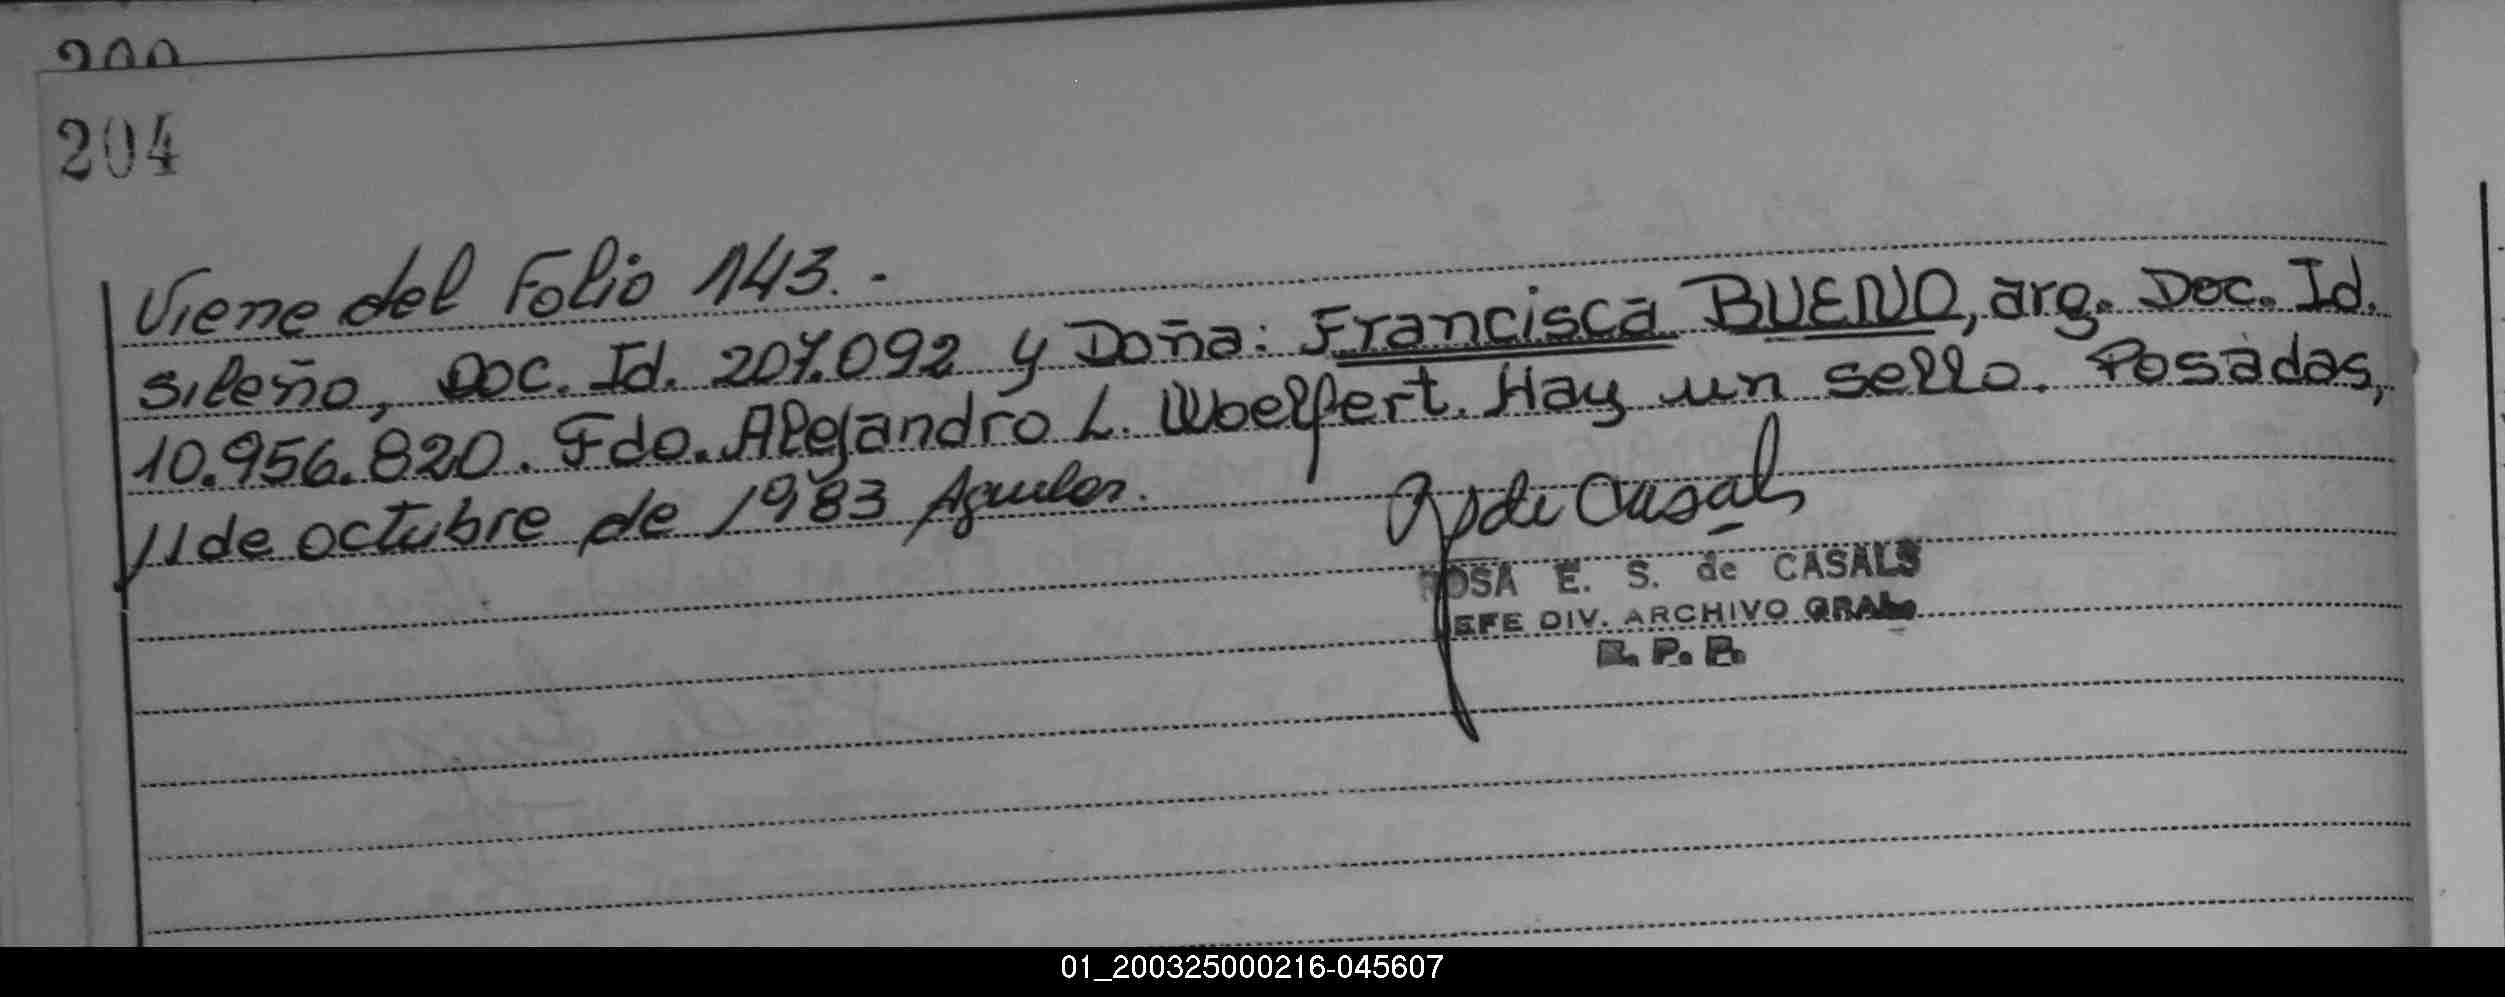 200
204
Viene del Folio 143.-
sileño, Doc. Id. 207.092 y Doña: Francisca BUENO, arg. Doc. Id.
10.956.820. Fdo. Alejandro L. Woelfert. Hay un sello. Posadas,
11 de octubre de 1983 Aguilar.
de Casals
ROSA E. S. de CASALS
JEFE DIV. ARCHIVO GRAL.
R. P. P.
01_200325000216-045607